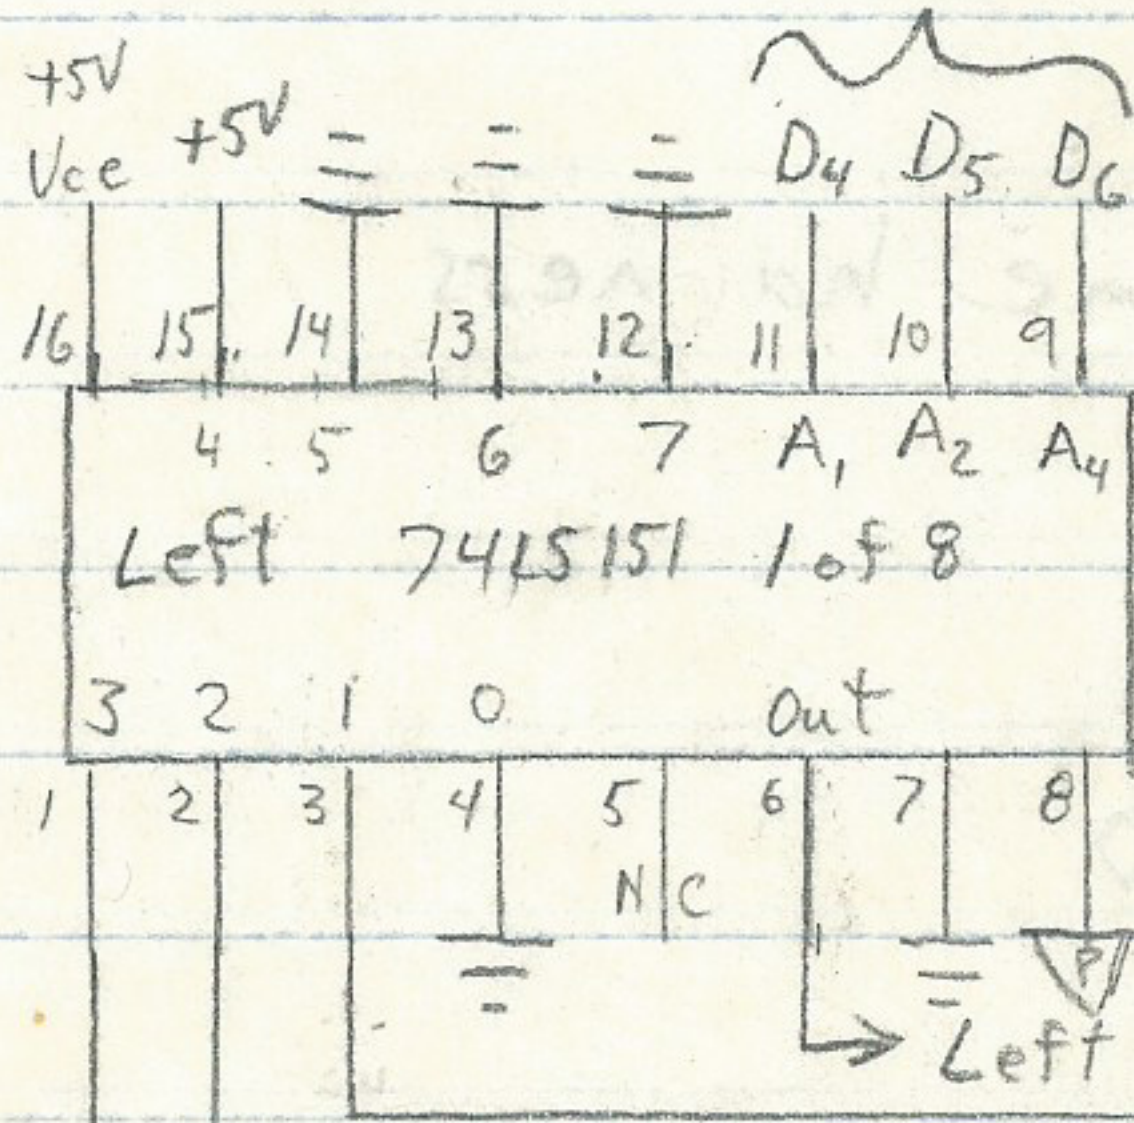 +5V
Vce +5V D4 D5 D6
16 15 14 13 12 11 10 9
4 5 6 7 A1 A2 A4
Left 74LS151 1 of 8
3 2 1 0 Out
1 2 3 4 5 6 7 8
N C
P
Left